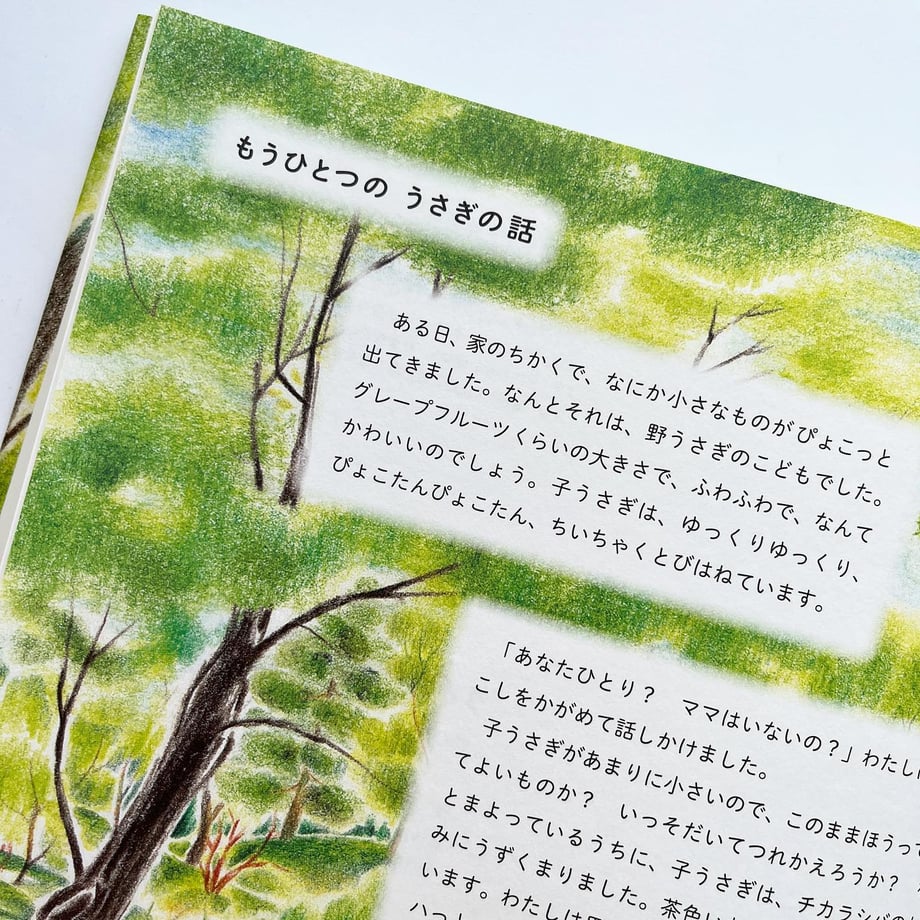 もうひとつの うさぎの話
ある日、家のちかくで、なにか小さなものがぴょこっと
出てきました。なんとそれは、野うさぎのこどもでした。
グレープフルーツくらいの大きさで、ふわふわで、なんて
かわいいのでしょう。子うさぎは、ゆっくりゆっくり、
ぴょこたんぴょこたん、ちいちゃくとびはねています。
「あなたひとり？　ママはいないの？」わたしは
こしをかがめて話しかけました。
子うさぎがあまりに小さいので、このままほうって
てよいものか？　いっそだいてつれかえろうか？
とまよっているうちに、子うさぎは、チカラシバの
みにうずくまりました。茶色い
います。わたしは
ハっと